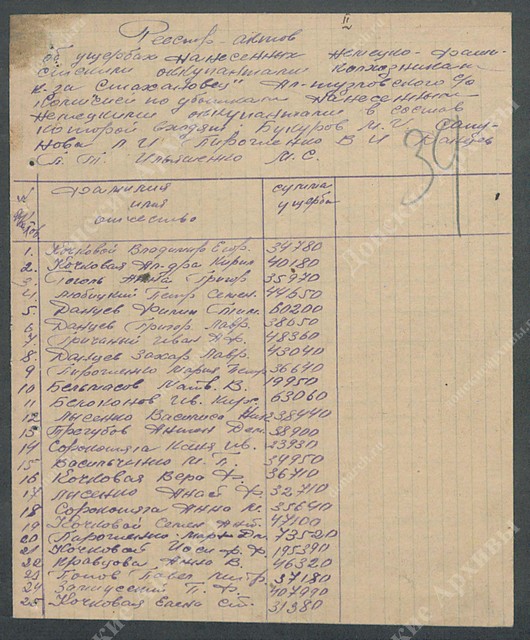 II
Реестр актов
об ущербах нанесенных немецко-фашист-
скими оккупантами колхозникам
к-за Стахановец"
комиссией по убыткам нанесенным
немецкими оккупантами в состав
которой входят: Букуров М. И.
нова Л И Пирогиенко В И Данцев
П. Т. Ильяшенко М. С.
39
№
Фамилия
имя
отчество
сумма
ущерба
1. Кочковой Владимир Егор. 34780
2. Кочковая Ал-дра Кирил 40180
3 Гоголь Анна Григор 35970
4 Любицкий Петр Семен. 44650
5 Данцев Филип Тим. 60200
6 Данцев Григор. Лавр. 38650
7 Гричаний Иван Аф. 48360
8 Данцев Захар Лавр. 43040
9 Пирогиенко Мария Петр 36640
10 Бельмасов Матв. В. 19950
11 Белоконов Ив. Кирс. 63060
12 Лысенко Василиса Ник 238440
13 Трегубов Антон Дем. 38900
14 Ив. 23930
15 Васильченко М. П. 34950
16 Кочковая Вера Ф. 36710
17 Лисенко Анас Ф. 32710
18 Анна М. 35640
19 Кочковой Семен Ант. 47100
20 73520
21 Кочковой 195390
22 Кравцова Анна В. 46320
23 Попов Павел 37180
24 П. Ф. 407990
25 Кочковая Елена 31380
Донские Архивы